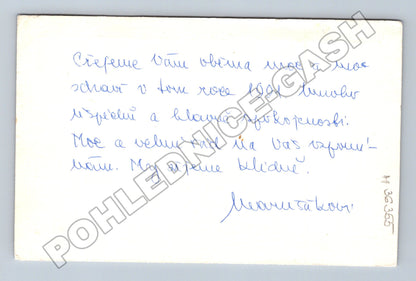 Přejeme Vám oběma moc a moc
zdraví v tom roce 1981 mnoho
úspěchů a hlavně spokojenosti.
Moc a velmi rád na Vás vzpomí-
nám. My žijeme klidně.
POHLEDNICE-GASH
H 36355